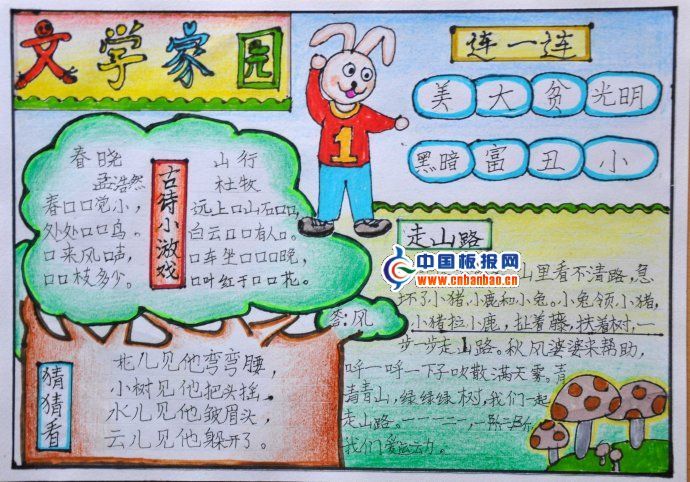 文学家园
连一连
美 大 贫 光明
黑暗 富 丑 小
古诗小游戏
春晓
孟浩然
春口口觉小，
处处口口鸟。
口来风口声，
口口枝多少。
山行
杜牧
远上口山石口口，
白云口口有人口。
口车坐口口口晚，
口叶红于口口花。
答:风
猜猜看
花儿见他弯弯腰，
小树见他把头摇，
水儿见他皱眉头，
云儿见他躲开了。
走山路
中国板报网
www.cnbanbao.cn
山里看不清路，急
坏了小猪,小鹿和小兔。小兔领小猪，
小猪拉小鹿，扯着藤，扶着树，一
步一步走山路。秋风婆婆来帮助，
呼一呼一下子吹散满天雾。青
青青山，绿绿绿树，我们一起
走山路。一一二一，一
我们爱运动。